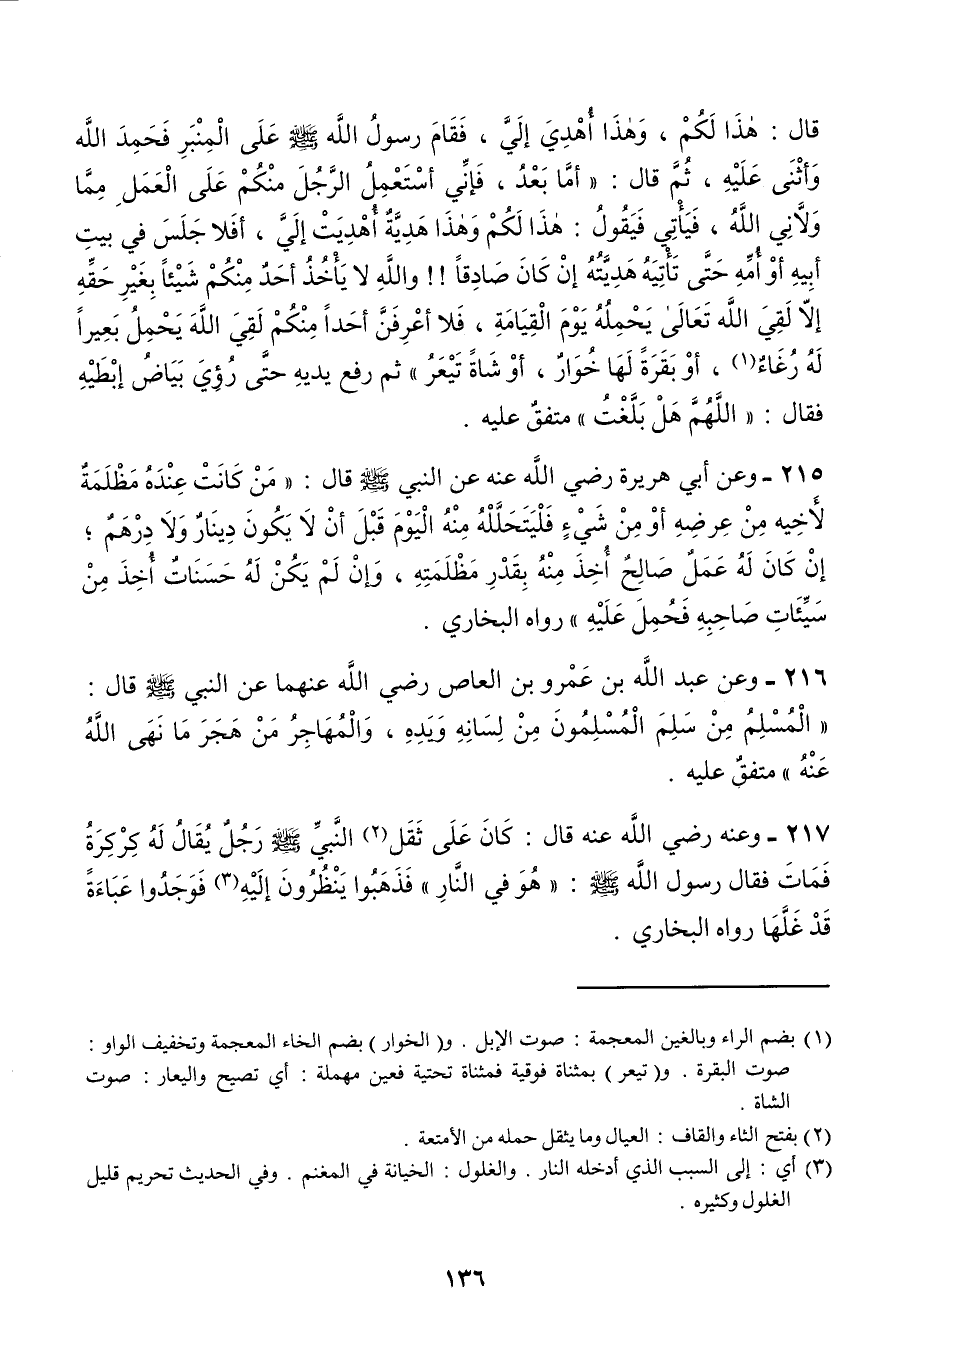 قال : هٰذَا لَكُمْ ، وَهٰذَا أُهْدِيَ إِلَيَّ ، فَقَامَ رسولُ اللَّه ﷺ عَلَى الْمِنْبَرِ فَحَمِدَ اللَّه
وَأَثْنَى عَلَيْهِ ، ثُمَّ قال : « أمَّا بَعْدُ ، فَإنِّي أسْتَعْمِلُ الرَّجُلَ مِنْكُمْ عَلَى الْعَمَلِ مِمَّا
وَلَّانِي اللَّهُ ، فَيَأْتِي فَيَقُولُ : هٰذَا لَكُمْ وَهٰذَا هَدِيَّةٌ أُهْدِيَتْ إلَيَّ ، أفَلا جَلَسَ في بيتِ
أبيهِ أوْ أُمِّهِ حَتَّى تَأْتِيَهُ هَدِيَّتُهُ إنْ كَانَ صَادِقاً !! واللَّهِ لا يَأْخُذُ أحَدٌ مِنْكُمْ شَيْئاً بِغَيْرِ حَقِّهِ
إلّا لَقِيَ اللَّه تَعَالَىٰ يَحْمِلُهُ يَوْمَ الْقِيَامَةِ ، فَلا أعْرِفَنَّ أحَداً مِنْكُمْ لَقِيَ اللَّهَ يَحْمِلُ بَعِيراً
لَهُ رُغَاءٌ(١) ، أوْ بَقَرَةً لَهَا خُوَارٌ ، أوْ شَاةً تَيْعَرُ » ثم رفع يديهِ حتَّى رُؤِيَ بَيَاضُ إبْطَيْهِ
فقال : « اللَّهُمَّ هَلْ بَلَّغْتُ » متفقٌ عليه .
٢١٥ ـ وعن أبي هريرة رضي اللَّه عنه عن النبي ﷺ قال : « مَنْ كَانَتْ عِنْدَهُ مَظْلَمَةٌ
لأَخِيه مِنْ عِرضِهِ أوْ مِنْ شَيْءٍ فَلْيَتَحَلَّلْهُ مِنْهُ الْيَوْمَ قَبْلَ أنْ لَا يَكُونَ دِينَارٌ وَلَا دِرْهَمٌ ؛
إنْ كَانَ لَهُ عَمَلٌ صَالِحٌ أُخِذَ مِنْهُ بِقَدْرِ مَظْلَمَتِهِ ، وَإنْ لَمْ يَكُنْ لَهُ حَسَنَاتٌ أُخِذَ مِنْ
سَيِّئَاتِ صَاحِبِهِ فَحُمِلَ عَلَيْهِ » رواه البخاري .
٢١٦ ـ وعن عبد اللَّه بن عَمْرو بن العاص رضي اللَّه عنهما عن النبي ﷺ قال :
« الْمُسْلِمُ مِنْ سَلِمَ الْمُسْلِمُونَ مِنْ لِسَانِهِ وَيَدِهِ ، وَالْمُهَاجِرُ مَنْ هَجَرَ مَا نَهَى اللَّهُ
عَنْهُ » متفقٌ عليه .
٢١٧ ـ وعنه رضي اللَّه عنه قال : كَانَ عَلَى ثَقَل(٢) النَّبيِّ ﷺ رَجُلٌ يُقَالُ لَهُ كِرْكِرَةُ
فَمَاتَ فقال رسول اللَّه ﷺ : « هُوَ في النَّارِ » فَذَهَبُوا يَنْظُرُونَ إلَيْهِ(٣) فَوَجَدُوا عَبَاءَةً
قَدْ غَلَّهَا رواه البخاري .
(١) بضم الراء وبالغين المعجمة : صوت الإبل . و( الخوار ) بضم الخاء المعجمة وتخفيف الواو :
صوت البقرة . و( تيعر ) بمثناة فوقية فمثناة تحتية فعين مهملة : أي تصيح واليعار : صوت
الشاة .
(٢) بفتح الثاء والقاف : العيال وما يثقل حمله من الأمتعة .
(٣) أي : إلى السبب الذي أدخله النار . والغلول : الخيانة في المغنم . وفي الحديث تحريم قليل
الغلول وكثيره .
١٣٦